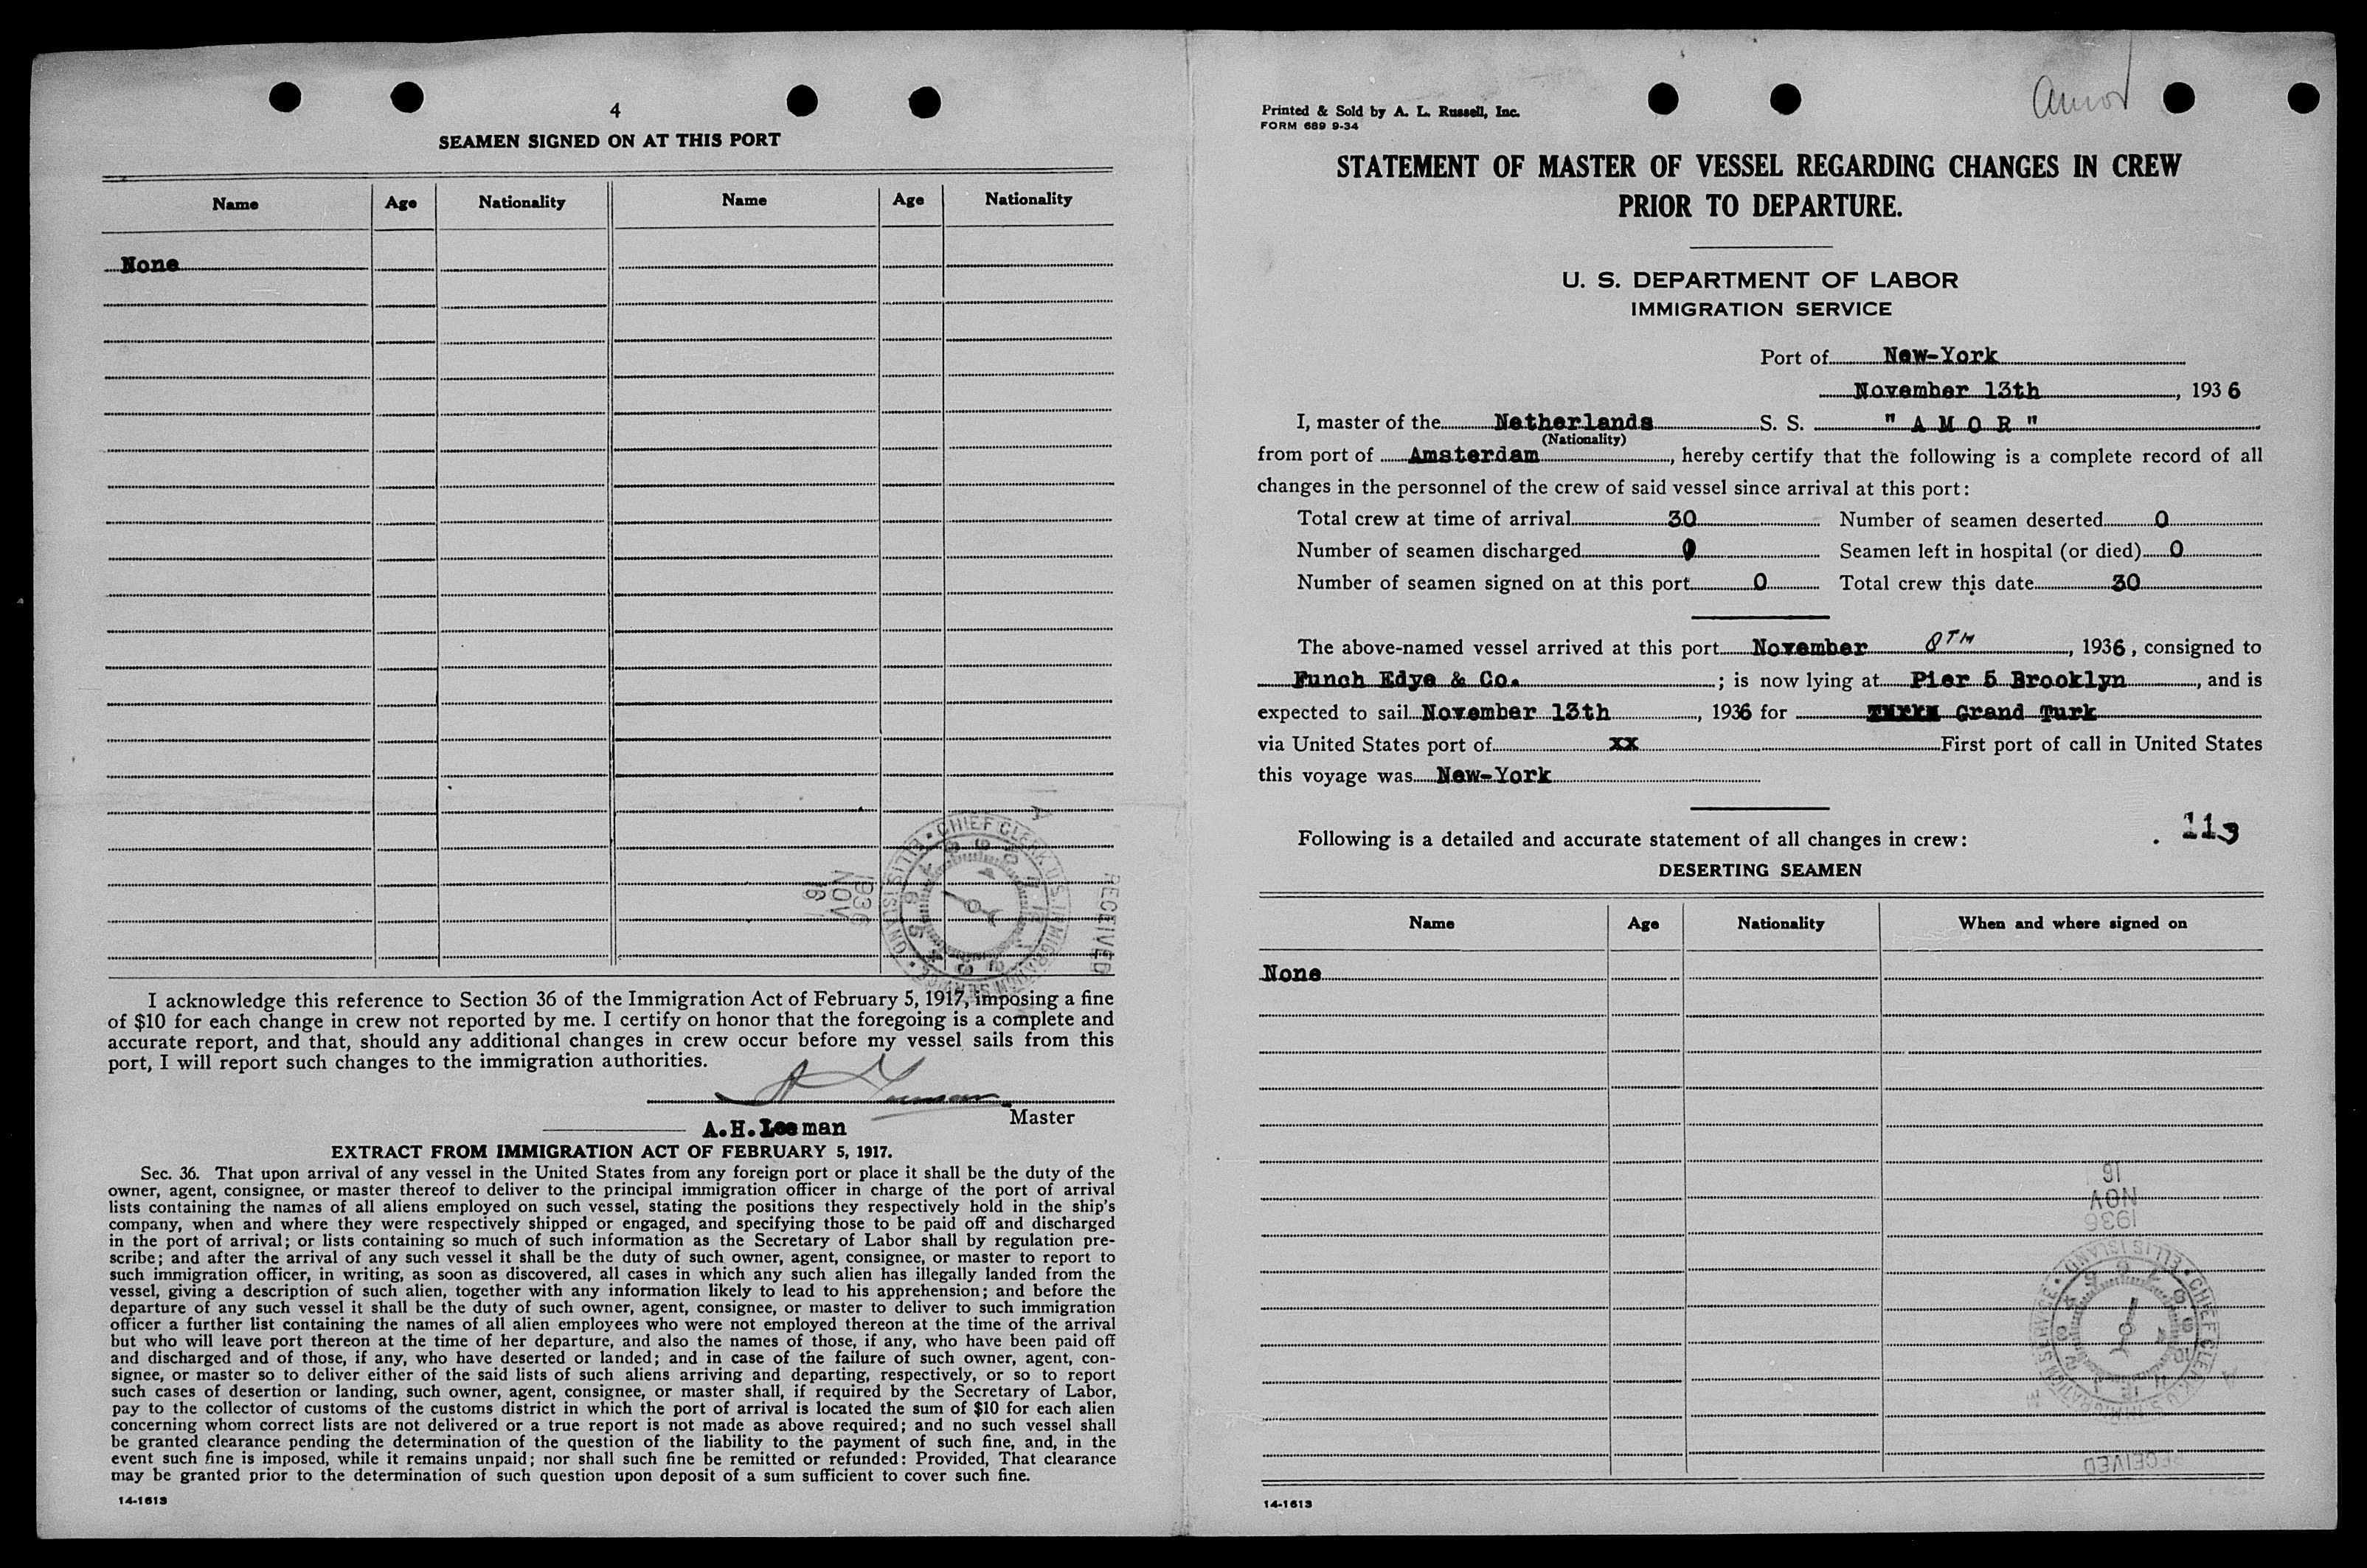 4
SEAMEN SIGNED ON AT THIS PORT
Name Age Nationality Name Age Nationality
None
CHIEF CLERK U.S. IMMIGRATION SERVICE • ELLIS ISLAND •
1936
NOV
16
RECEIVED
I acknowledge this reference to Section 36 of the Immigration Act of February 5, 1917, imposing a fine
of $10 for each change in crew not reported by me. I certify on honor that the foregoing is a complete and
accurate report, and that, should any additional changes in crew occur before my vessel sails from this
port, I will report such changes to the immigration authorities.
Master
A.H.Leeman
EXTRACT FROM IMMIGRATION ACT OF FEBRUARY 5, 1917.
Sec. 36. That upon arrival of any vessel in the United States from any foreign port or place it shall be the duty of the
owner, agent, consignee, or master thereof to deliver to the principal immigration officer in charge of the port of arrival
lists containing the names of all aliens employed on such vessel, stating the positions they respectively hold in the ship's
company, when and where they were respectively shipped or engaged, and specifying those to be paid off and discharged
in the port of arrival; or lists containing so much of such information as the Secretary of Labor shall by regulation pre-
scribe; and after the arrival of any such vessel it shall be the duty of such owner, agent, consignee, or master to report to
such immigration officer, in writing, as soon as discovered, all cases in which any such alien has illegally landed from the
vessel, giving a description of such alien, together with any information likely to lead to his apprehension; and before the
departure of any such vessel it shall be the duty of such owner, agent, consignee, or master to deliver to such immigration
officer a further list containing the names of all alien employees who were not employed thereon at the time of the arrival
but who will leave port thereon at the time of her departure, and also the names of those, if any, who have been paid off
and discharged and of those, if any, who have deserted or landed; and in case of the failure of such owner, agent, con-
signee, or master so to deliver either of the said lists of such aliens arriving and departing, respectively, or so to report
such cases of desertion or landing, such owner, agent, consignee, or master shall, if required by the Secretary of Labor,
pay to the collector of customs of the customs district in which the port of arrival is located the sum of $10 for each alien
concerning whom correct lists are not delivered or a true report is not made as above required; and no such vessel shall
be granted clearance pending the determination of the question of the liability to the payment of such fine, and, in the
event such fine is imposed, while it remains unpaid; nor shall such fine be remitted or refunded: Provided, That clearance
may be granted prior to the determination of such question upon deposit of a sum sufficient to cover such fine.
14-1613
Amor
Printed & Sold by A. L. Russell, Inc.
FORM 689 9-34
STATEMENT OF MASTER OF VESSEL REGARDING CHANGES IN CREW
PRIOR TO DEPARTURE.
U. S. DEPARTMENT OF LABOR
IMMIGRATION SERVICE
Port of New-York
November 13th, 1936
I, master of the Netherlands S. S. "AMOR"
(Nationality)
from port of Amsterdam, hereby certify that the following is a complete record of all
changes in the personnel of the crew of said vessel since arrival at this port:
Total crew at time of arrival 30 Number of seamen deserted 0
Number of seamen discharged 0 Seamen left in hospital (or died) 0
Number of seamen signed on at this port 0 Total crew this date 30
The above-named vessel arrived at this port November 8TH, 1936, consigned to
Funch Edye & Co. ; is now lying at Pier 5 Brooklyn, and is
expected to sail November 13th, 1936 for Grand Turk
via United States port of xx First port of call in United States
this voyage was New-York
Following is a detailed and accurate statement of all changes in crew:
113
DESERTING SEAMEN
Name Age Nationality When and where signed on
None
16
NOV
1936
CHIEF CLERK U.S. IMMIGRATION SERVICE • ELLIS ISLAND •
RECEIVED
14-1613